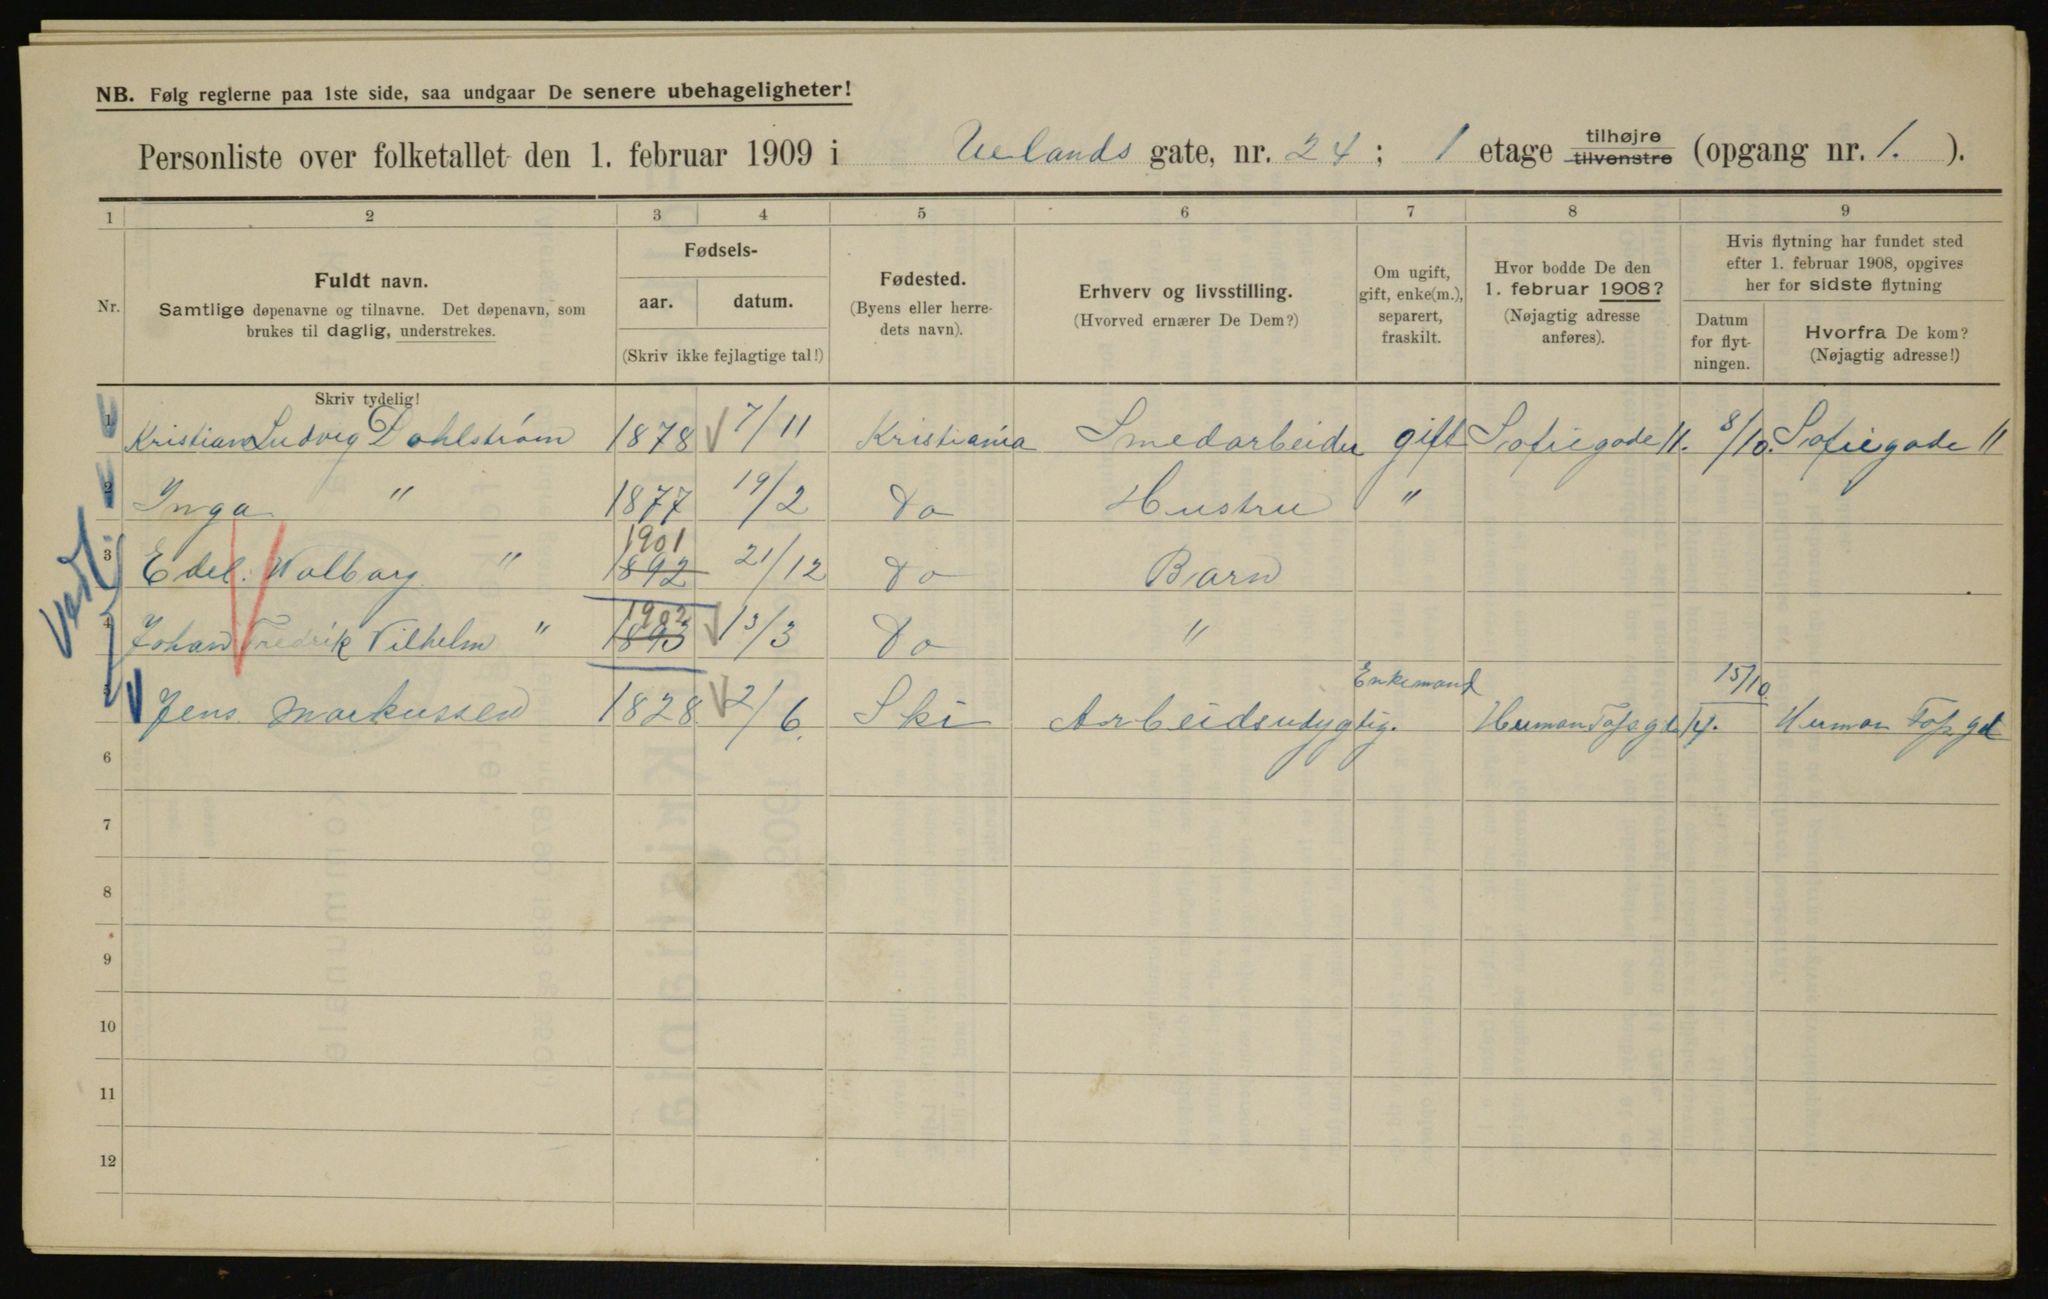 NB. Følg reglerne paa 1ste side, saa undgaar De senere ubehageligheter!
Personliste over folketallet den 1. februar 1909 i Uelands gate, nr. 24; 1 etage tilhøjre tilvenstre (opgang nr. 1.).
1 2 3 4 5 6 7 8 9
Nr.
Fuldt navn.
Samtlige døpenavne og tilnavne. Det døpenavn, som
brukes til daglig, understrekes.
Fødsels-
aar. datum.
(Skriv ikke fejlagtige tal!)
Fødested.
(Byens eller herre-
dets navn).
Erhverv og livsstilling.
(Hvorved ernærer De Dem?)
Om ugift,
gift, enke(m.),
separert,
fraskilt.
Hvor bodde De den
1. februar 1908?
(Nøjagtig adresse
anføres).
Hvis flytning har fundet sted
efter 1. februar 1908, opgives
her for sidste flytning
Datum
for flyt-
ningen.
Hvorfra De kom?
(Nøjagtig adresse!)
Skriv tydelig!
1 Kristian Ludvig Dahlstrøm 1878 7/11 Kristiania Smedarbeider gift Sofiegade 11. 8/10. Sofiegade 11
2 Inga " 1877 19/2 Do Hustru "
1901
3 Edel. Walborg " 1892 21/12 Do Barn
1902
4 Johan Fredrik Vilhelm " 1893 13/3 Do "
Enkemand 15/10.
5 Jens Markussen 1828 2/6. Ski Arbeidsudygtig. Herman Fossgde 14. Herman Foss gd
6
7
8
9
10
11
12